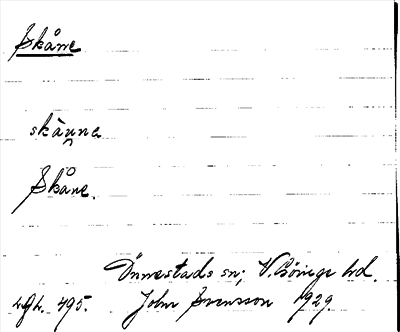 Skåne
skånna
Skåne.
Önnestads sn; V. Göinge hd.
495. John Svensson 1929.